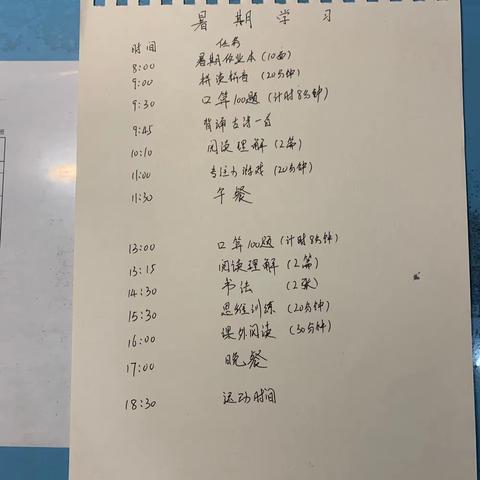 暑期学习
时间 任务
8:00 暑期作业本(10面)
9:00 拼读拼音(20分钟)
9:30 口算100题(计时8分钟)
9:45 背诵古诗一首
10:10 阅读理解(2篇)
11:00 专注力游戏(20分钟)
11:30 午餐
13:00 口算100题(计时8分钟)
13:15 阅读理解(2篇)
14:30 书法(2张)
15:30 思维训练(20分钟)
16:00 课外阅读(30分钟)
17:00 晚餐
18:30 运动时间